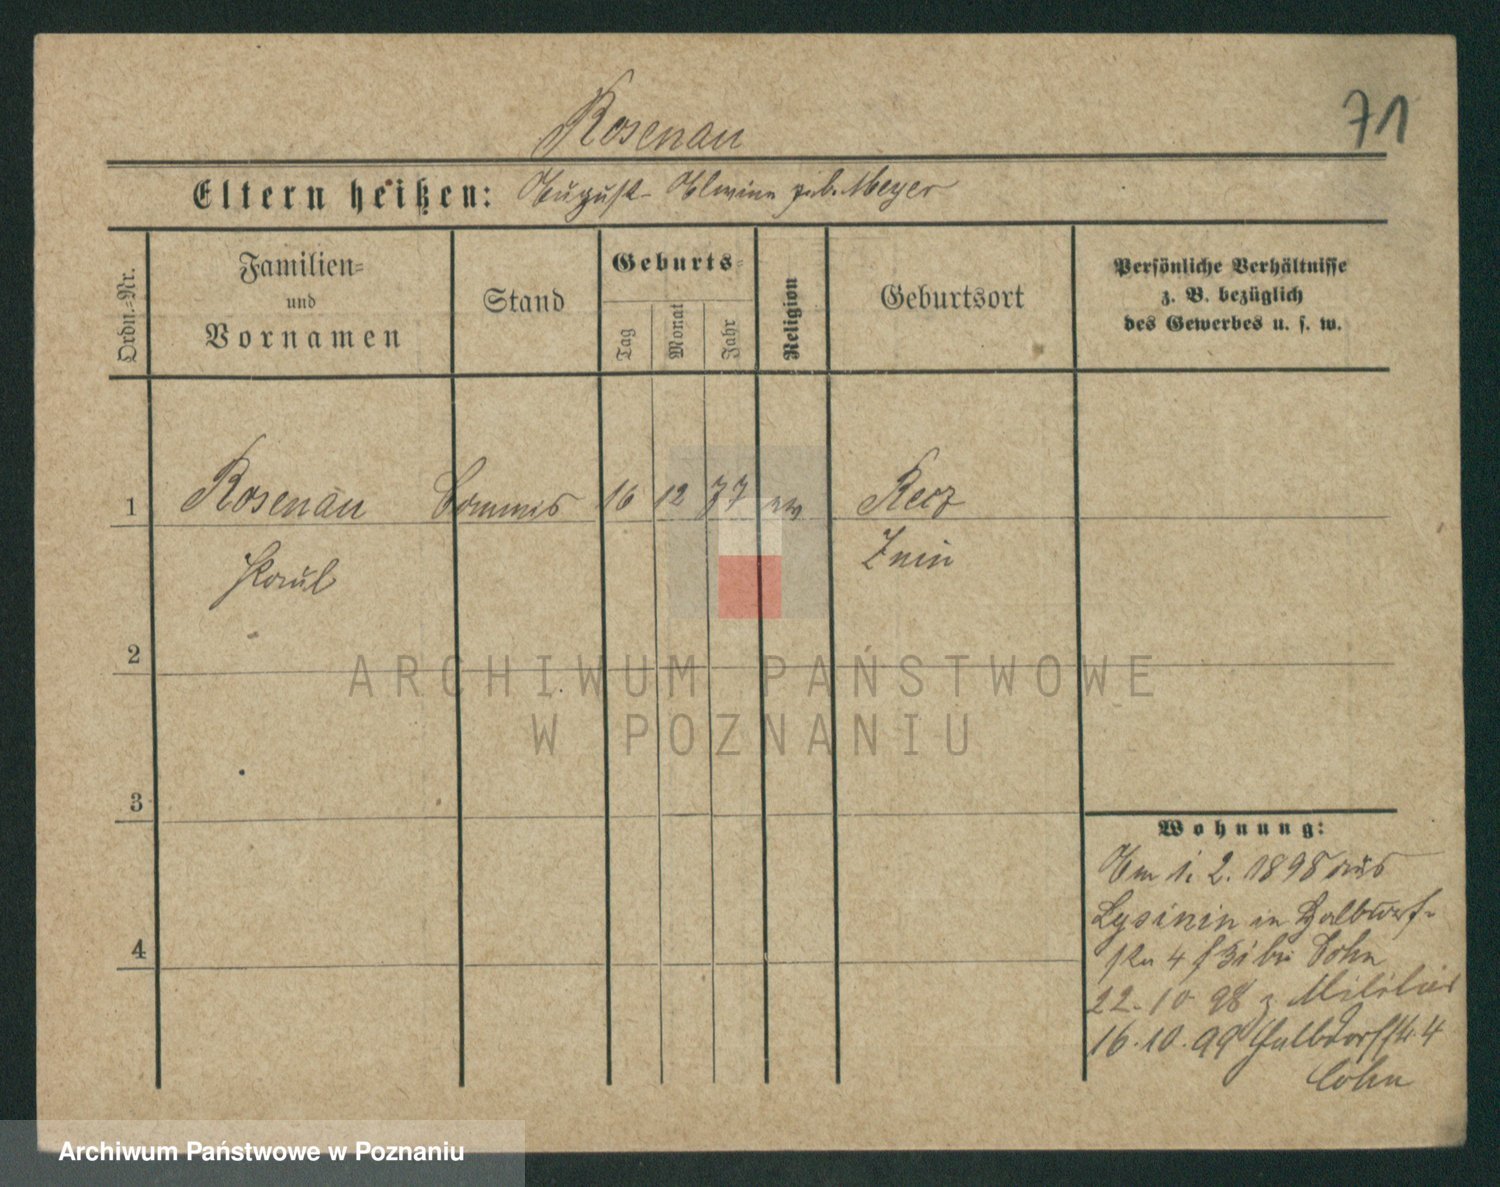 71
Rosenau
Eltern heißen: August Alwine geb. Meyer
Ordn.=Nr.
Familien=
und
Vornamen
Stand
Geburts=
Tag
Monat
Jahr
Religion
Geburtsort
Persönliche Verhältnisse
z. B. bezüglich
des Gewerbes u. s. w.
1
Rosenau Commis 16 12 77 ev
Paul
Znin
2
3
4
Wohnung:
Am 1. 2. 1898 aus
in Halbdorf-
4 bei Cohn
22. 10 98 z Militär
16. 10. 99 Halbdorfstr. 4
Cohn
ARCHIWUM PAŃSTWOWE
W POZNANIU
Archiwum Państwowe w Poznaniu